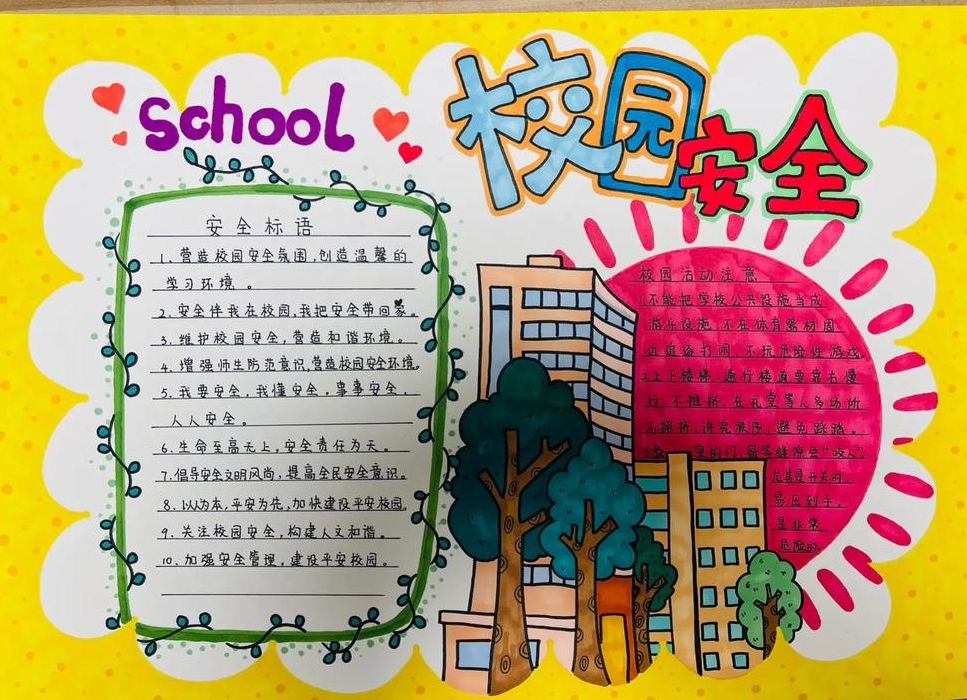 school
校园安全
安全标语
1. 营造校园安全氛围,创造温馨的
学习环境。
2. 安全伴我在校园,我把安全带回家。
3. 维护校园安全,营造和谐环境。
4. 增强师生防范意识,营造校园安全环境。
5. 我要安全,我懂安全,事事安全,
人人安全。
6. 生命至高无上,安全责任为天。
7. 倡导安全文明风尚,提高全民安全意识。
8. 以人为本,平安为先,加快建设平安校园,
9. 关注校园安全,构建人文和谐。
10. 加强安全管理,建设平安校园。
校园活动注意
1.不能把学校公共设施当成
游乐设施,不在体育器材周
边追逐打闹,不玩危险性游戏。
2.上下楼梯,通行楼道要靠右慢
行,不推挤,在礼堂等人多场所
不拥挤,讲究秩序,避免踩踏。
里的门、窗等缝隙会“咬人”
尤其是开关时,
易压到手,
是非常
危险的